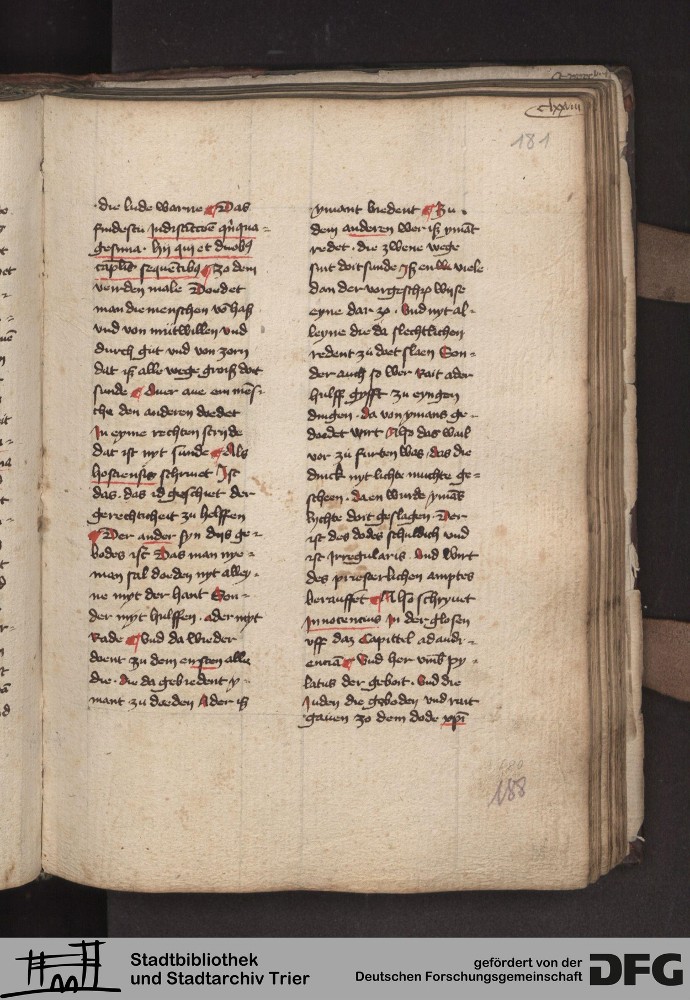 clxxviii
181
die lude warne Das
findestu Jndistictoe qnqua-
gesima. hii qui et duobus
capitlis sequentibus zo dem
veirden male Doedet
man die menschen vo haß
vnd von mutwillen vnd
durch gut vnd von zorn
dat iß alle wege groiß doit
sunde Auer aue ein mes-
che den anderen doedet
Jn eyme rechten stryde
dat ist nyt sunde Als
hostiensis schriuet Jst
das. das id geschiet der
gerechticheit zu helffen
Der ander syn dys ge-
bodes ist Das man nye-
man sal doeden nyt alley-
ne myt der hant Son-
der myt hulffen. ader myt
Rade Vnd da wieder
doent zu dem ersten alle
die. die da gebiedent y-
mant zu doeden Ader iß
ymant biedent Zu
dem anderen wer iß ymat
redet. die zwene wege
sint doitsunde Jß en viele
dan der vorgeschr wise
eyne dar zo. Vnd nyt al-
leyne die da slechtlichen
redent zu doet slaen Son-
der auch so wer Rait ader
hulff gyfft zu eyngen
dingen. da von ymans ge-
doedet wirt Also das wail
vor zu furten was. das die
dinck nyt lichte muchte ge-
scheen. da en wurde ymas
lychte dort geslagen. Der
ist des dodes schuldich vnd
ist Jrregularis. Vnd wirt
des priesterlichen amptes
berauffet Also schryuet
Jnnocencius Jn der glosen
vff daz Capittel ad audi-
encia Vnd her vmb py-
latus der gebort. Vnd die
Juden die geboden vnd rait
gauen zo dem dode xpi
188
Stadtbibliothek
und Stadtarchiv Trier
gefördert von der
Deutschen Forschungsgemeinschaft
DFG